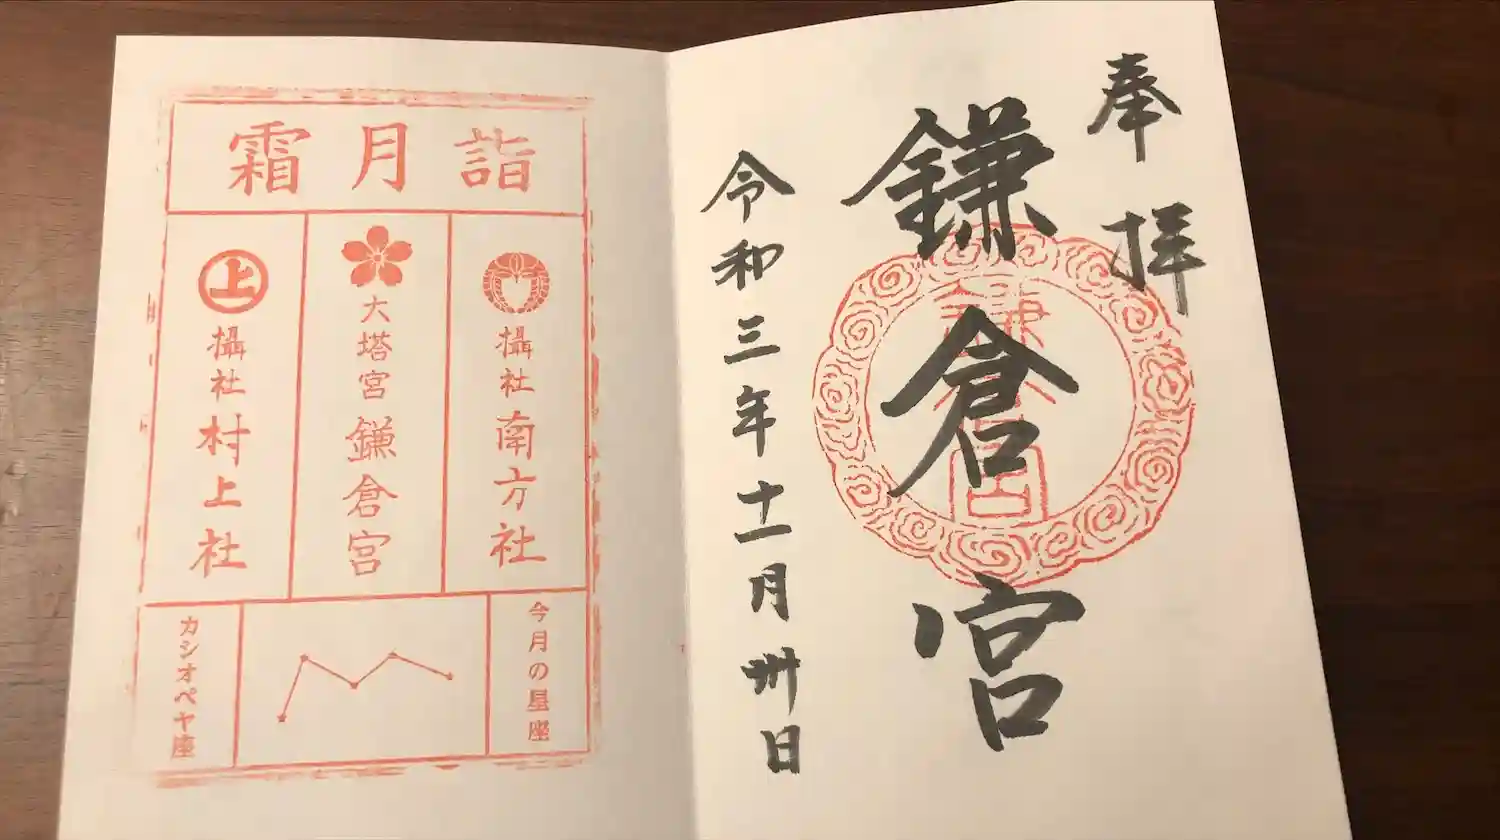 奉拝
鎌倉宮
令和三年十一月卅日
霜月詣
攝社 南方社
大塔宮 鎌倉宮
上
攝社 村上社
今月の星座
カシオペヤ座